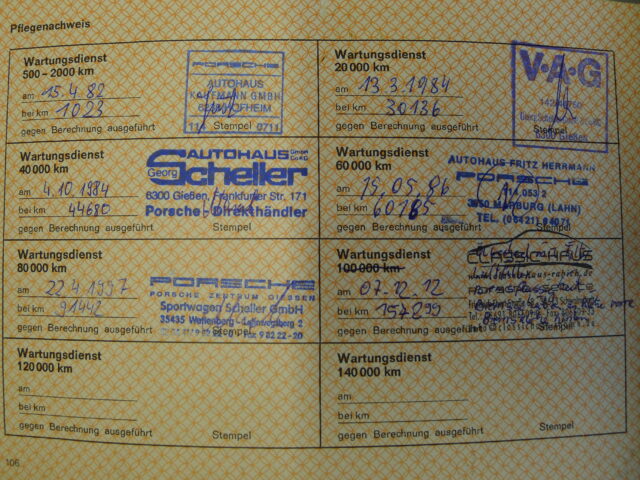 Pflegenachweis
Wartungsdienst
500 – 2000 km
am 15.4.82
bei km 1023
gegen Berechnung ausgeführt
PORSCHE
AUTOHAUS
KAUFMANN GMBH
HOFHEIM
Stempel
Wartungsdienst
20 000 km
am 13.3.1984
bei km 30136
gegen Berechnung ausgeführt
V·A·G
6300 Gießen
Stempel
Wartungsdienst
40 000 km
am 4.10.1984
bei km 44680
gegen Berechnung ausgeführt
AUTOHAUS GmbH Co KG
Georg Scheller
6300 Gießen, Frankfurter Str. 171
Porsche Direkthändler
Stempel
Wartungsdienst
60 000 km
am 15.05.86
bei km 60185
gegen Berechnung ausgeführt
AUTOHAUS FRITZ HERRMANN
PORSCHE
MARBURG (LAHN)
TEL. (06421)
Stempel
Wartungsdienst
80 000 km
am 22.4.1997
bei km 91442
gegen Berechnung ausgeführt
PORSCHE
PORSCHE ZENTRUM GIESSEN
Sportwagen Scheller GmbH
35435 Wettenberg
Fax 9 82 22-20
Stempel
Wartungsdienst
100 000 km
am 07.12.12
bei km 157299
gegen Berechnung ausgeführt
Stempel
Wartungsdienst
120 000 km
am
bei km
gegen Berechnung ausgeführt
Stempel
Wartungsdienst
140 000 km
am
bei km
gegen Berechnung ausgeführt
Stempel
106